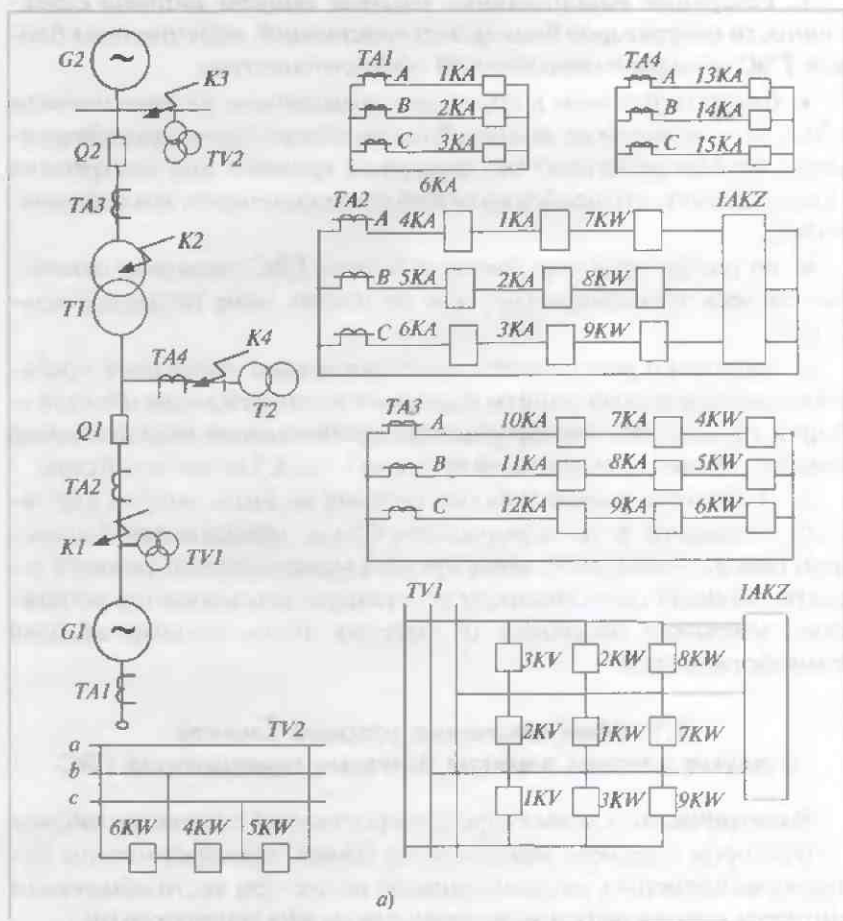 G2
K3
Q2
TV2
TA3
K2
T1
TA4
K4
T2
Q1
TA2
K1
TV1
G1
TA1
TA1
A 1KA
B 2KA
C 3KA
TA4
A 13KA
B 14KA
C 15KA
6KA
TA2 1AKZ
A 4KA 1KA 7KW
B 5KA 2KA 8KW
C 6KA 3KA 9KW
TA3
A 10KA 7KA 4KW
B 11KA 8KA 5KW
C 12KA 9KA 6KW
TV1 1AKZ
3KV 2KW 8KW
2KV 1KW 7KW
1KV 3KW 9KW
TV2
a
b
c
6KW 4KW 5KW
а)